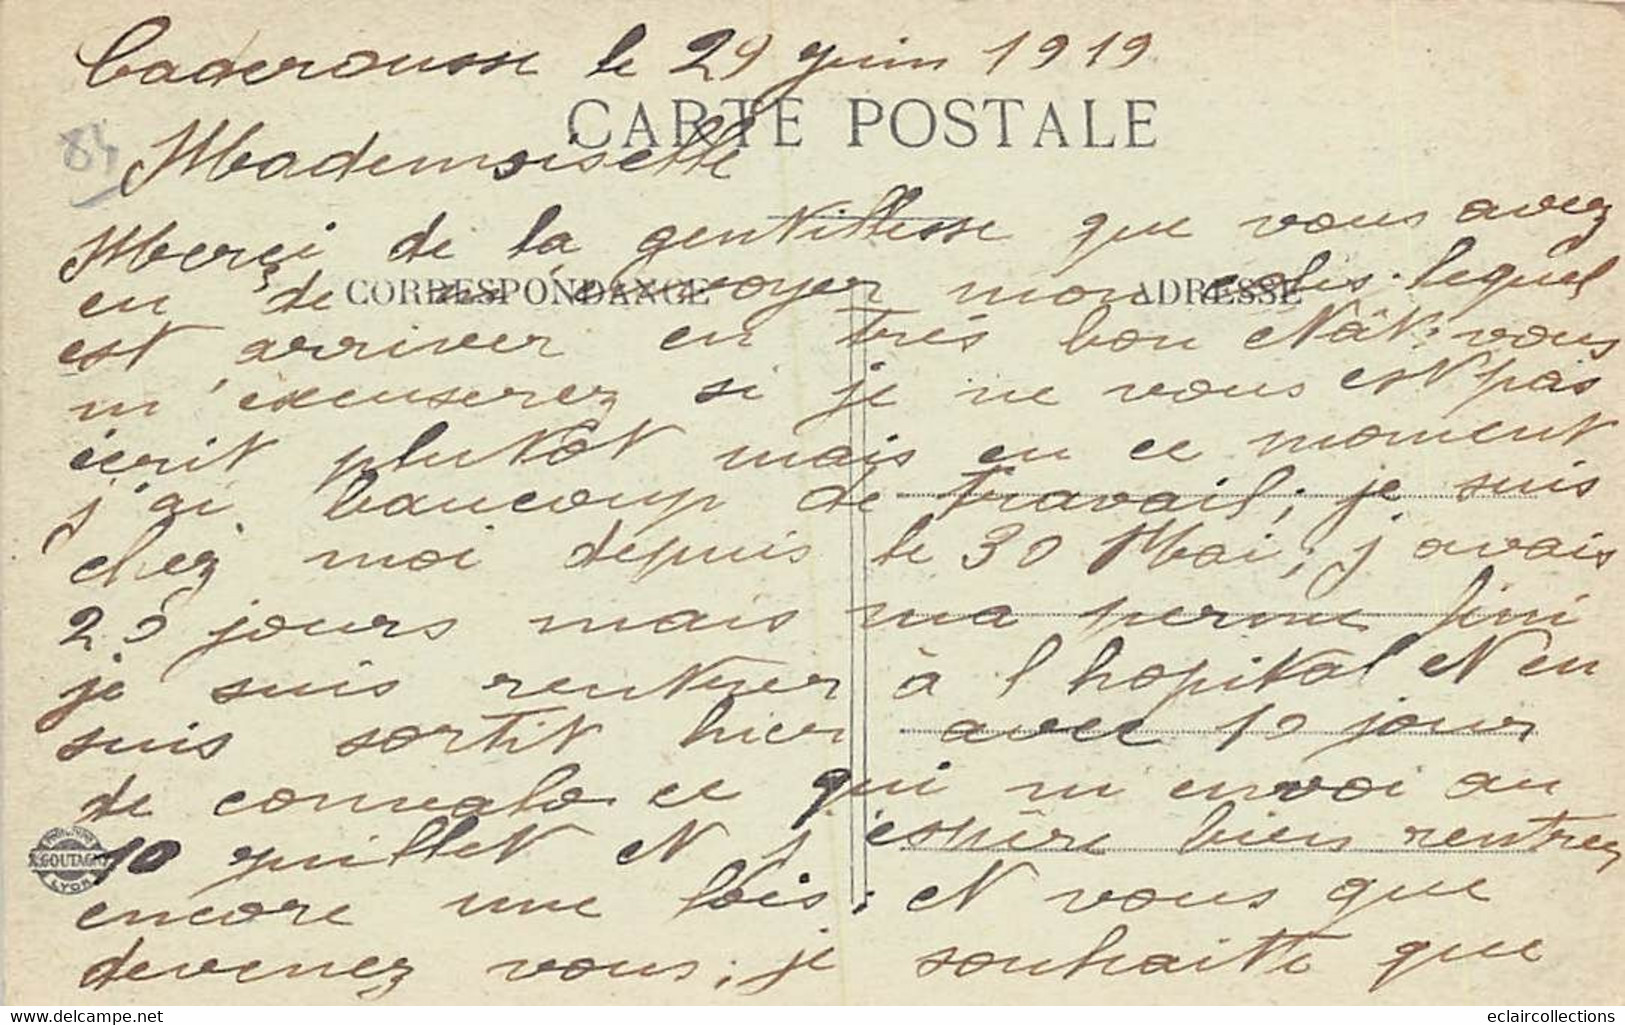 Caderousse le 29 juin 1919
CARTE POSTALE
84
Mademoiselle
Merçi de la gentillesse que vous avez
CORRESPONDANCE ADRESSE
eu de m envoyer mon colis. lequel
est arriver en très bon etât: vous
m'excuserez si je ne vous est pas
écrit plutôt mais en ce moment
j'ai beaucoup de travail; je suis
chez moi depuis le 30 Mai; j avais
25 jours mais ma perme fini
je suis rentrer à l hopital et en
suis sortit hier avec 10 jour
de convalo ce qui m envoi au
10 juillet et j espère bien rentrer
encore une fois; et vous que
devenez vous; je souhaitte que
GOUTAGNY
LYON
www.delcampe.net
eclaircollections